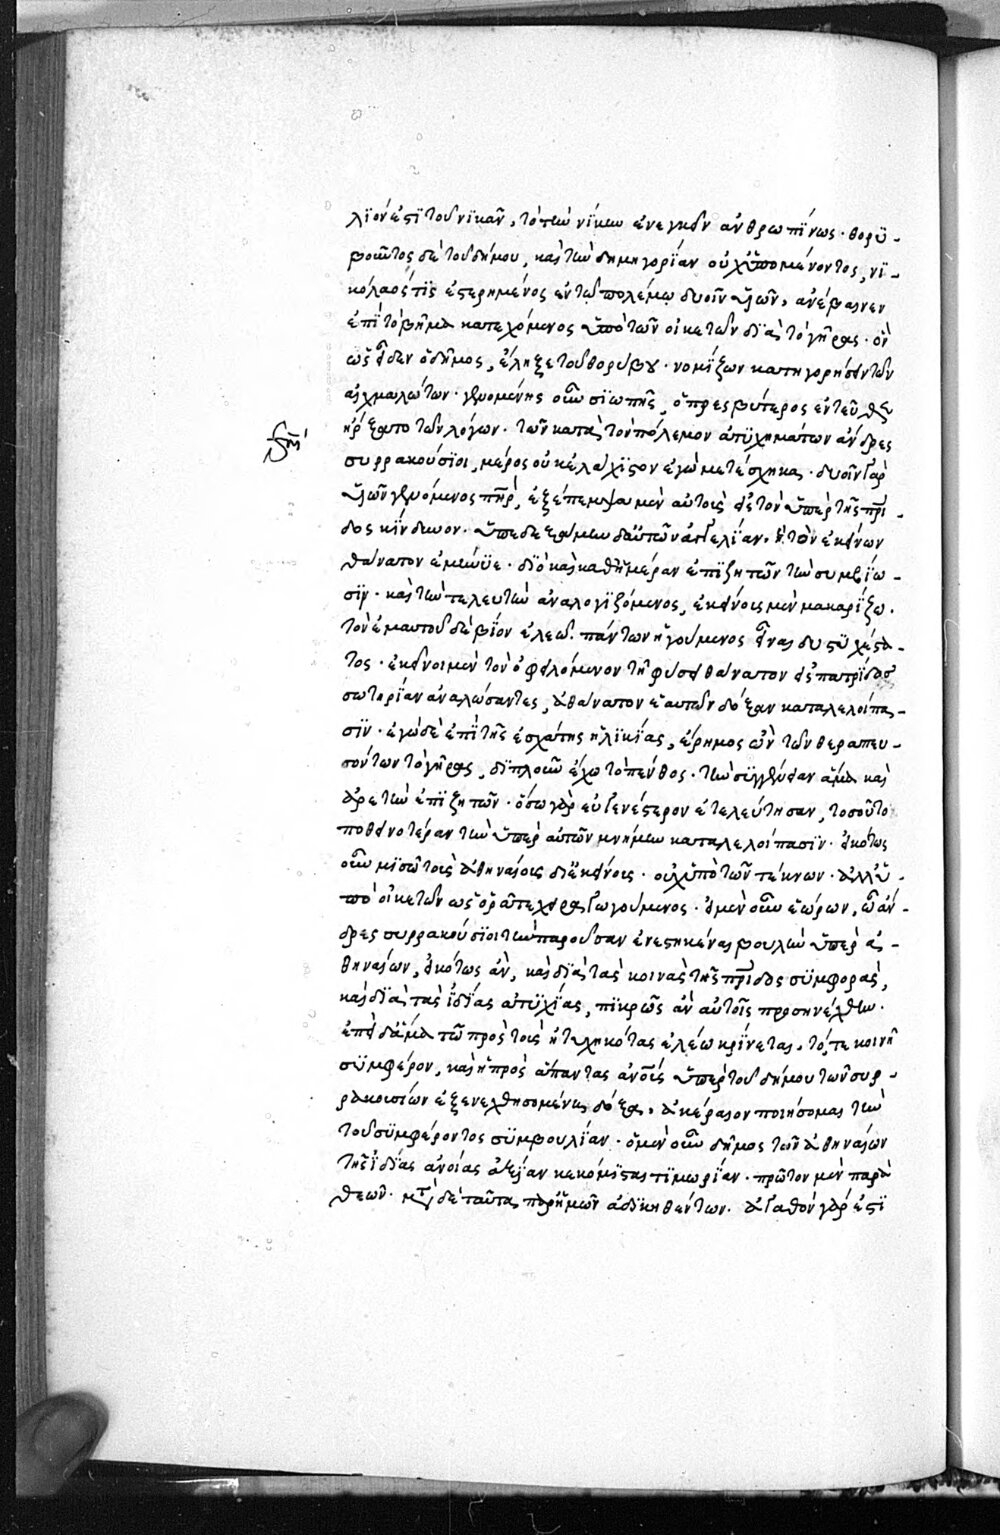 λϊόν ἐστϊ τοῦ νϊκᾶν, τὸ τὴν νίκην ἐνεγκεῖν ἀνθρωπίνως · θορϋ-
βοῦντος δὲ τοῦ δήμου, καὶ τὴν δημηγορίαν οὐχ ὑπομένοντος, νϊ-
κόλαός τϊς ἐστερημένος ἐν τῷ πολέμῳ δυοῖν υἱῶν, ἀνέβαινεν
ἐπϊ τὸ βῆμα κατεχόμενος ὑπὸ τῶν οἰκετῶν δϊὰ τὸ γῆρας · ὃν
ὡς εἶδεν ὁ δῆμος, ἔληξε τοῦ θορύβου · νομΐζων κατηγορήσειν τῶν
αἰχμαλώτων · γενομένης οὖν σϊωπῆς, ὁ πρεσβύτερος ἐντεῦθεν
ἤρξατο τῶν λόγων · τῶν κατὰ τὸν πόλεμον ἀτϋχημάτων ἄνδρες
συρρακούσϊοι, μέρος οὐκ ἐλάχϊστον ἐγὼ μετέσχηκα · δυοῖν γὰρ
υἱῶν γενόμενος πηρ, ἐξέπεμψα μὲν αὐτοὺς εἰς τὸν ὑπὲρ τῆς πρι-
δος κΐνδυνον · ὑπεδεξάμην δ' αὐτῶν ἀγγελΐαν, ἣ τὸν ἐκείνων
θάνατον ἐμήνϋε · δϊὸ καὶ καθ' ἡμέραν ἐπϊζητῶν τὴν συμβΐω-
σϊν · καὶ τὴν τελευτὴν ἀναλογϊζόμενος, ἐκείνους μὲν μακαρΐζω.
τὸν ἐμαυτοῦ δὲ βΐον ἐλεῶ. πάντων ἡγούμενος εἶναι δυστϋχέστα-
τος · ἐκεῖνοι μὲν τὸν ὀφειλόμενον τῇ φύσει θάνατον εἰς πατρΐδος
σωτηρΐαν ἀναλώσαντες, ἀθάνατον ἑαυτῶν δόξαν καταλελοΐπα-
σϊν · ἐγὼ δὲ ἐπϊ τῆς ἐσχάτης ἡλϊκΐας, ἔρημος ὢν τῶν θεραπευ-
σόντων τὸ γῆρας, δϊπλοῦν ἔχω τὸ πένθος · τὴν σϋγγένειαν ἅμα καὶ
ἀρετὴν ἐπϊζητῶν · ὅσῳ γὰρ εὐγενέστερον ἐτελεύτησαν, τοσοῦτο
ποθεινοτέραν τὴν ὑπὲρ αὐτῶν μνήμην καταλελοΐπασϊν · εἰκότως
οὖν μϊσῶ τοὺς ἀθηναίους δϊ' ἐκείνους · οὐχ ὑπὸ τῶν τέκνων · ἀλλ' ὑ-
πὸ οἰκετῶν ὡς ὁρᾶτε χειραγωγούμενος · εἰ μὲν οὖν ἑώρων, ὦ ἄν-
δρες συρρακούσϊοι τὴν παροῦσαν ἐνεστηκέναι βουλὴν ὑπὲρ ἀ-
θηναίων, εἰκότως ἂν, καὶ δϊὰ τὰς κοινὰς τῆς πριδος σϋμφορὰς,
καὶ δϊὰ τὰς ϊδΐας ἀτϋχΐας, πϊκρῶς ἂν αὐτοῖς προσηνέχθην.
ἐπεὶ δ' ἅμα τῷ πρὸς τοὺς ἠτυχηκότας ἐλέῳ κρΐνεται, τό, τε κοινῇ
σϋμφέρον, καὶ ἡ πρὸς ἅπαντας ἀνους ὑπὲρ τοῦ δήμου τῶν συρ-
ρακουσίων ἐξενεχθησομένη δόξα, ἀκέραιον ποιήσομαι τὴν
τοῦ σϋμφέροντος σϋμβουλΐαν · ὁ μὲν οὖν δῆμος τῶν ἀθηναίων
τῆς ϊδΐας ἀνοίας ἀξΐαν κεκόμϊσται τϊμωρΐαν · πρῶτον μὲν παρὰ
θεῶν · μετὰ δὲ ταῦτα παρ' ἡμῶν ἀδϊκηθέντων. ἀγαθὸν γὰρ ἐστϊ